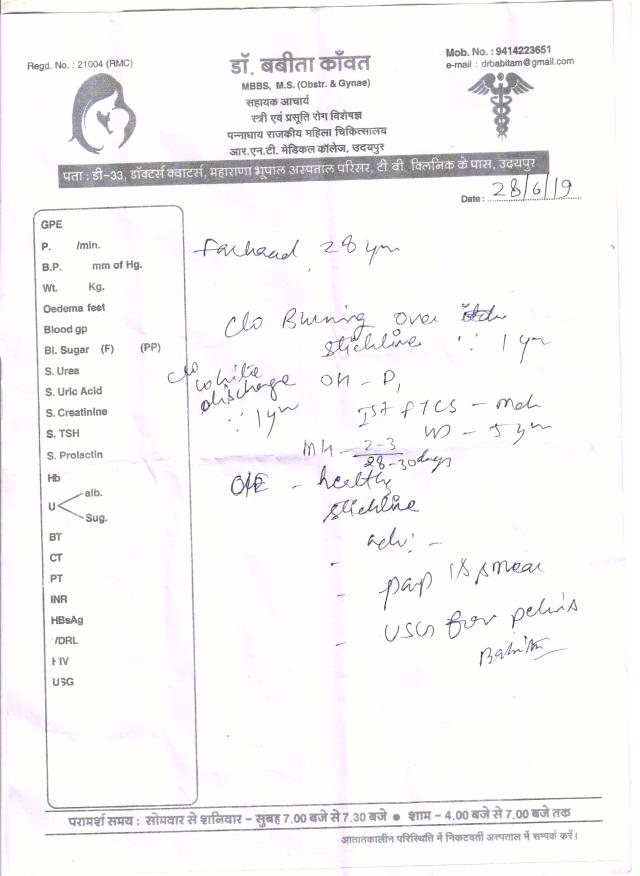 Regd. No. : 21004 (RMC)
डॉ. बबीता काँवत
MBBS, M.S. (Obstr. & Gynae)
सहायक आचार्य
स्त्री एवं प्रसूति रोग विशेषज्ञ
पन्नाधाय राजकीय महिला चिकित्सालय
आर.एन.टी. मेडिकल कॉलेज, उदयपुर
Mob. No. : 9414223651
e-mail : drbabitam@gmail.com
पता : डी-33, डॉक्टर्स क्वाटर्स, महाराणा भूपाल अस्पताल परिसर, टी बी. क्लिनिक के पास, उदयपुर
Date : 28/6/19
GPE
P. /min.
B.P. mm of Hg.
Wt. Kg.
Oedema feet
Blood gp
Bl. Sugar (F) (PP)
S. Urea
S. Uric Acid
S. Creatinine
S. TSH
S. Prolactin
Hb
U alb.
Sug.
BT
CT
PT
INR
HBsAg
VDRL
HIV
USG
28 yrs
C/o Burning over
stichline ∵ 1 yr
C/o white discharge ∵ 1 yr
OH - P1
Ist FTCS - Mch
- 5 yrs
MH - 2-3
28-30 days
O/E - healthy
stichline
adv: -
- pap's smear
- USG for pelvis
परामर्श समय : सोमवार से शनिवार - सुबह 7.00 बजे से 7.30 बजे ● शाम - 4.00 बजे से 7.00 बजे तक
आतातकालीन परिस्थिति में निकटवर्ती अस्पताल में सम्पर्क करें।